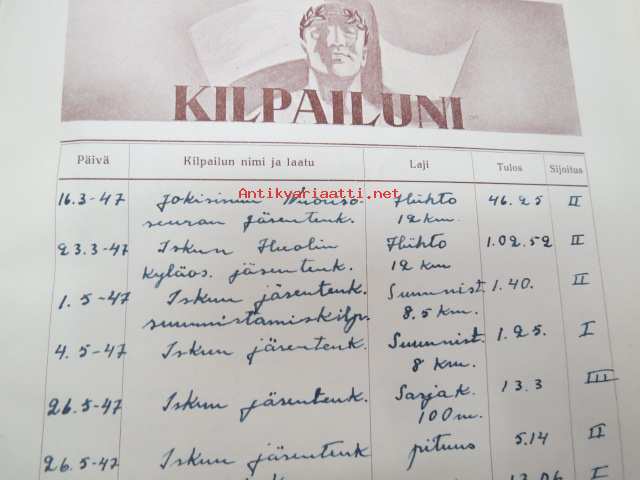 KILPAILUNI
Päivä Kilpailun nimi ja laatu Laji Tulos Sijoitus
Antikvariaatti.net
16.3-47 Jokisivun Nuoriso- Hiihto 46.25 II
seuran jäsentenk. 12 km.
23.3-47 Iskun Huolin Hiihto 1.02.52 II
kyläos. jäsentenk. 12 km
1.5-47 Iskun jäsentenk. Suunnist. 1.40. II
suunnistamiskilp. 8.5 km.
4.5-47 Iskun jäsentenk. Suunnist. 1.25. I
8 km.
26.5-47 Iskun jäsentenk. Sarjak. 13.3 III
100 m.
26.5-47 Iskun jäsentenk pituus 5.14 II
13.06 I